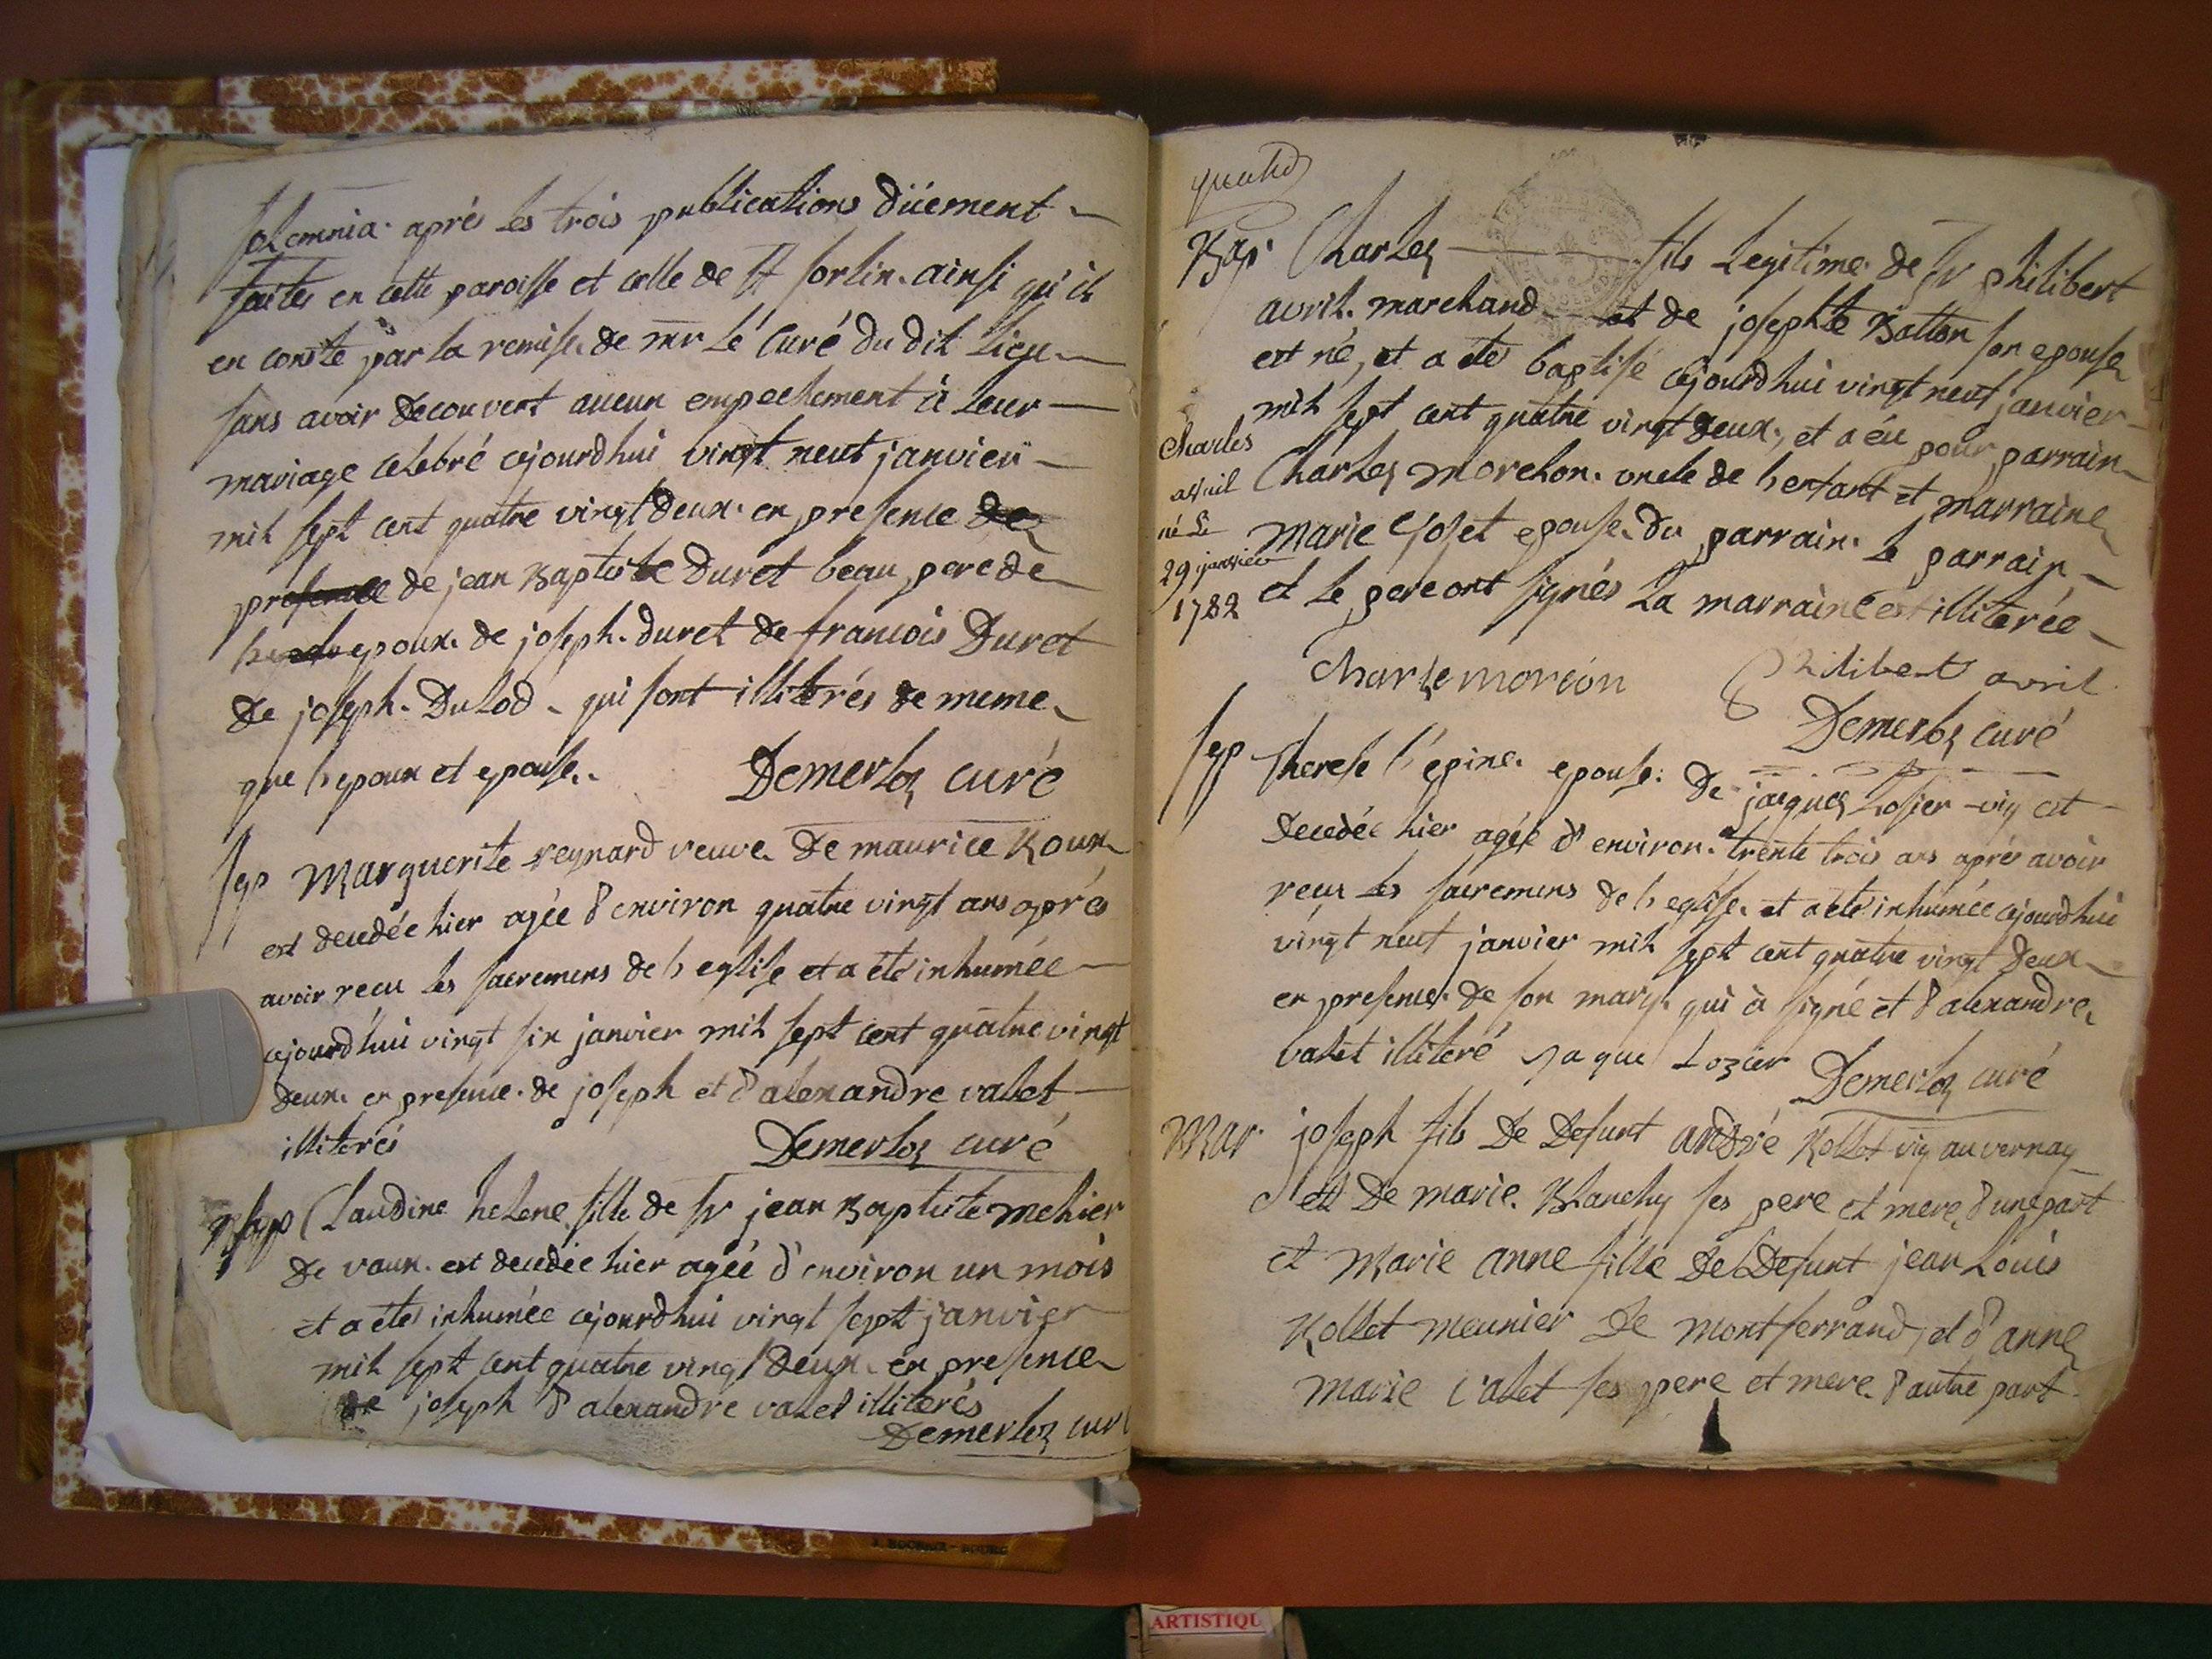 solemnia. aprés les trois publications düement
faites en cette paroisse et celle de St sorlin. ainsi qu'il
en conste par la remise. de mr Lé Curé du dit Lieu
sans avoir decouvert aucun empechement à leur
mariage celebré cejourdhui vingt neuf janvier
mil sept cent quatre vingt deux. en presence de
presence de jean Baptiste Duret beau pere de
epoux. de joseph. duret de francois Duret
de joseph. Dulod. qui sont illiterés de meme
que l'epoux et epouse.
Demerloz curé
sep Marguerite reynard veuve. De maurice Roux
est decedée hier agée d'environ quatre vingt ans aprés
avoir recu les sacremens de l'eglise et a été inhumée
cejourd'hui vingt six janvier mil sept cent quatre vingt
deux. en presence. de joseph et d'alexandre valet
illiterés
Demerloz curé
sep Claudine helene fille de Sr jean Baptiste mehier
de vaux. est decedée hier agée d'environ un mois
et a été inhumée cejourdhui vingt sept janvier
mil sept cent quatre vingt deux. en presence
de joseph d'alexandre valet illiterés
Demerloz curé
Bap. Charles fils Legitime de Sr philibert
avril. marchand et de josephte Batton son epouse
est né, et a été baptisé cejourdhui vingt neuf janvier
mil sept cent quatre vingt deux, et a éu pour parrain
Charles Morelon. oncle de l'enfant et marraine
Marie Goset epouse. du parrain. le parrain
et le pere ont signés La marraine est illiterée
Charles
avril
né Le
29 janvier
1782
Charle moréon
Philibert avril
Demerloz curé
sep Therese l'épine. epouse. de jacques Losier vig est
decedée hier agée d'environ. trente trois ans aprés avoir
recu les sacremens de l'eglise. et a été inhumée cejourdhui
vingt neuf janvier mil sept cent quatre vingt deux
en presence. de son mary. qui à signé et d'alexandre
valet illiteré
Jaque Lozier
Demerloz curé
Mar. joseph fils De Defunt andré Rollet vig au vernay
et De marie. Blanchy ses pere et mere, d'une part
et Marie anne fille De Defunt jean Louis
Rollet meunier De montferrand, et d'anne
marie valet ses pere et mere. d'autre part
ARTISTIQU